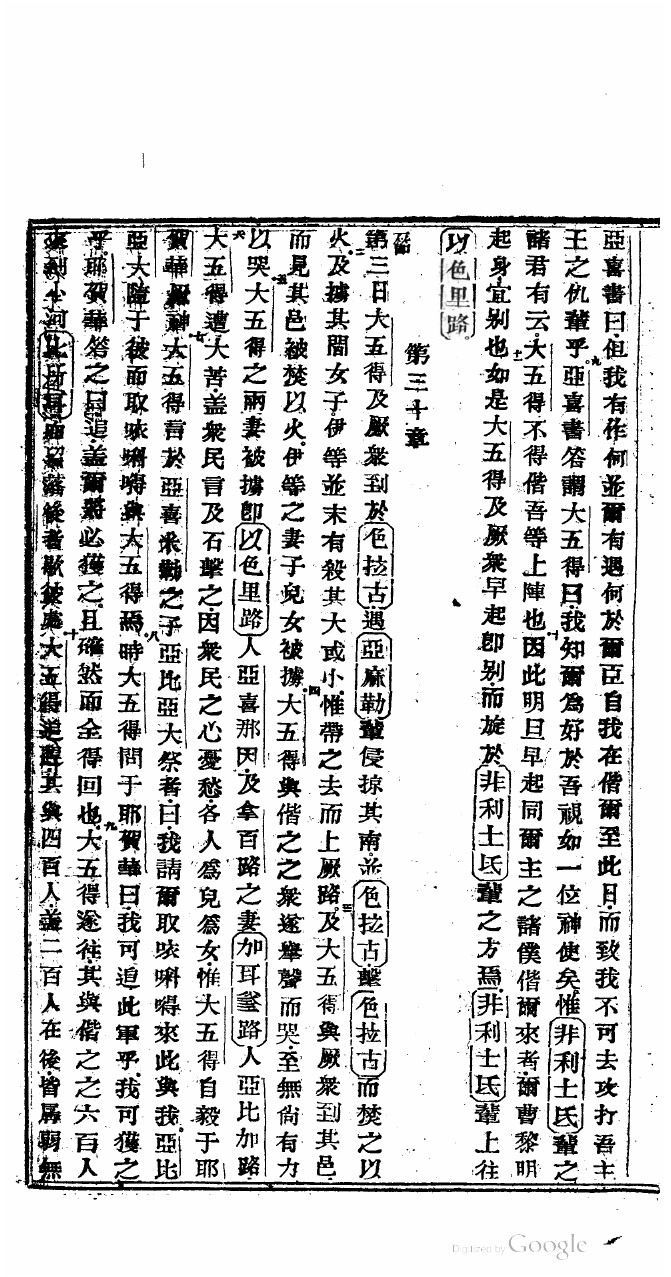 亞喜書曰但我有作何並爾有遇何於爾臣自我在偕爾至此日而致我不可去攻打吾主
王之仇輩乎九亞喜書答謂大五得曰我知爾為好於吾視如一位神使矣惟非利士氐輩之
諸君有云大五得不得偕吾等上陣也十因此明旦早起同爾主之諸僕偕爾來者爾曹黎明
起身宜别也十一如是大五得及厥衆早起即别而旋於非利士氐輩之方焉非利士氐輩上往
以色里路
第三十章
一節第三日大五得及厥衆到於色拉古遇亞麻勒輩侵掠其南並色拉古擊色拉古而焚之以
火二及擄其間女子伊等並未有殺其大或小惟帶之去而上厥路三及大五得與厥衆到其邑
而見其邑被焚以火伊等之妻子兒女被擄四大五得與偕之之衆遂舉聲而哭至無尚有力
以哭五大五得之兩妻被擄即以色里路人亞喜那因及拿百路之妻加耳𨬟路人亞比加路
六大五得遭大苦盖衆民言及石擊之因衆民之心憂愁各人為兒為女惟大五得自毅于耶
賀華厥神七大五得言於亞喜米勒之子亞比亞大祭者曰我請爾取咴唎嘚來此與我亞比
亞大隨于彼而取咴唎嘚與大五得焉八時大五得問于耶賀華曰我可追此軍乎我可獲之
乎耶賀華答之曰追盖爾將必獲之且確然而全得回也九大五得遂往其與偕之之六百人
來到小河比所耳而留落後者歇彼處十大五得追趕其與四百人盖二百人在後皆爲弱無
Digitized by Google